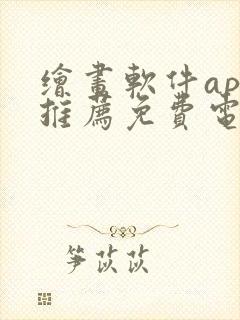 繪畫軟件ap
推薦免費電
笋苡苡